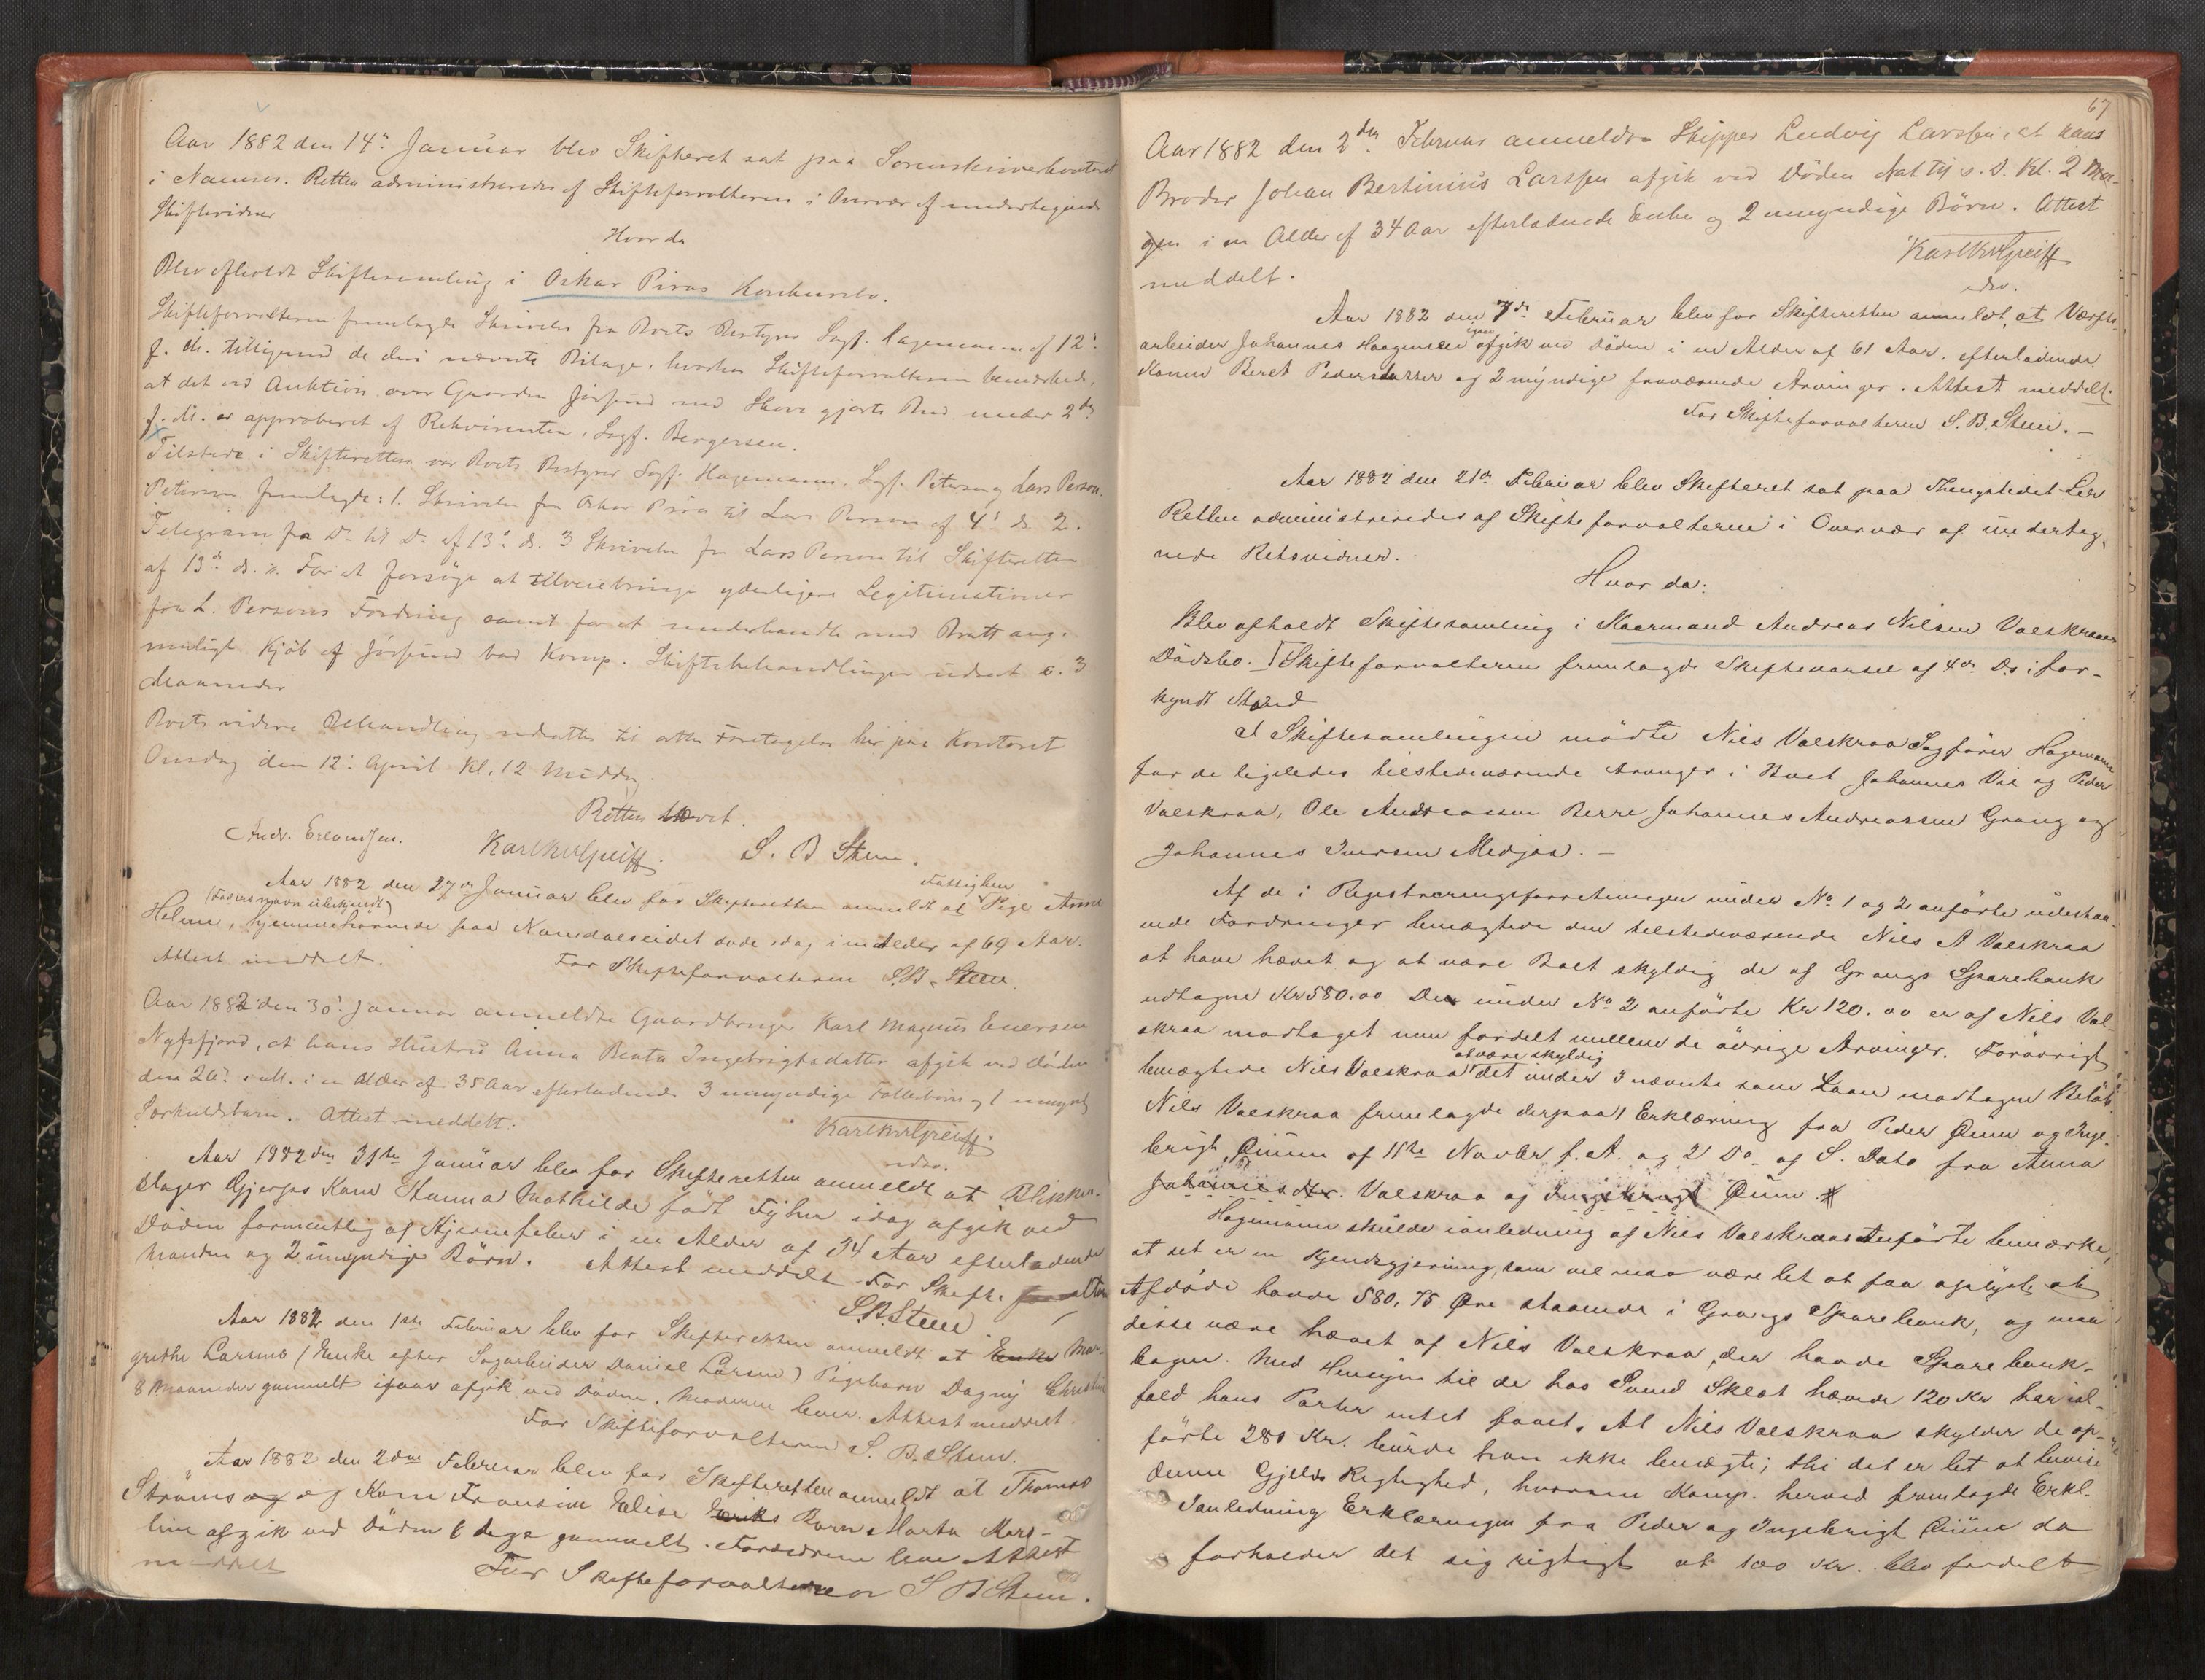 Aar 1882 den 14de Januar blev Skifteret sat paa Sorenskriverkontoret
i Namsos. Retten administreredes af Skifteforvalteren i Overvær af undertegnede
Skiftevidner
Hvor da
Blev afholdt Skiftesamling i Oskar Piros Konkursbo.
Skifteforvalteren fremlagde Skrivelse fra Boets Bestyrer Sagf. Hagemann af 12te
f. M. tilligemed de deri nævnte Bilage, hvorhos Skifteforvalteren bemærkede,
at det ved Auktion over Gaarden Jøssund med Skove gjorte Bud under 2den
f. M. er approberet af Rekvirenten, Sagf. Bergersen.
Tilstede i Skifteretten var Boets Bestyrer Sagf. Hagemann, Sagf. Petersen og Lars Person.
Petersen fremlagde: 1. Skrivelse fra Oskar Piro til Lars Person af 4de ds. 2.
Telegram fra Do til Do af 13de ds. 3 Skrivelse fra Lars Person til Skifteretten
af 13de ds. For at forsøge at tilveiebringe yderligere Legitimationer
fra L. Persons Fordring samt for at underhandle med Bratt ang.
muligt Kjøb af Jøssund bad Komp. Skiftebehandlingen udsat c. 3
Maaneder
Boets videre Behandling udsattes til atter Foretagelse her paa Kontoret
Onsdag den 12te April Kl. 12 Middag.
Retten hævet.
Andr. Erlandsen. Karl KvGreiff. S. B Steen.
Aar 1882 den 27de Januar blev for Skifteretten anmeldt at Fattiglem Pige Anne
(Fadersnavn ubekjendt)
Helene, hjemmehørende paa Namdalseidet døde idag i en Alder af 69 Aar.
Attest meddelt. For Skifteforvalteren S. B. Steen.
Aar 1882 den 30te Januar anmeldte Gaardbruger Karl Magnus Enersen
, at hans Hustru Anna Beata Ingebrigtsdatter afgik ved Døden
den 26de i en Alder af 35 Aar efterladende 3 umyndige Fællesbørn og 1 umyndig
Særkuldsbarn. Attest meddelt. Karl KvGreiff.
edsv.
Aar 1882 den 31te Januar blev for Skifteretten anmeldt at Blikken-
slager Gjersjøs Kone Hanna Mathilde født idag afgik ved
Døden formentlig af Hjernefeber i en Alder af 34 Aar efterladende
Manden og 2 umyndige Børn. Attest meddelt For Skifteforvalteren
S. B. Steen
Aar 1882 den 1ste Februar blev for Skifteretten anmeldt at Enke Mar-
grethe Larsens (Enke efter Sagarbeider Daniel Larsen) Pigebarn Dagny
8 Maaneder gammelt igaar afgik ved Døden, Moderen lever. Attest meddelt.
For Skifteforvalteren S. B. Steen.
Aar 1882 den 2den Februar blev for Skifteretten anmeldt at Thomas
Strøms og Kone Fransine Elise Barn Marta
line afgik ved Døden 6 dage gammelt. Forældrene leve Attest
meddelt For Skifteforvalteren S B Steen.
67
Aar 1882 den 2den Februar anmeldte Skipper Ludvig Larssen, at hans
Broder Johan Bertinius Larssen afgik ved Døden Nat til d. D. Kl. 2 Mor-
gen i en Alder af 34 Aar efterladende Enke og 2 umyndige Børn. Attest
meddelt. Karl KvGreiff
edsv.
Aar 1882 den 7de Februar blev for Skifteretten anmeldt, at Værfts-
arbeider Johannes Haagensen igaar afgik ved Døden i en Alder af 61 Aar, efterladende
Konen Beret Pedersdatter og 2 myndige fraværende Arvinger. Attest meddelt.
For Skifteforvalteren S. B. Steen. —
Aar 1882 den 21de Februar blev Skifteret sat paa Thingstedet Ler
Retten administreredes af Skifteforvalteren i Overvær af underteg-
nede Retsvidner.
Hvor da:
Blev afholdt Skiftesamling i Kaarmand Andreas Nilsen Valskraas
Dødsbo. Skifteforvalteren fremlagde Skiftevarsel af 4de Ds i for-
kyndt Stand
I Skiftesamlingen mødte Nils Valskraa Sagfører Hagemann
for de ligeledes tilstedeværende Arvinger i Boet Johannes Vie og Peder
Valskraa, Ole Andreassen Berre Johannes Andreassen Grong og
Johannes Iversen Medjaa. —
Af de i Registreringsforretningen under No 1 og 2 anførte udestaa-
ende Fordringer benægtede den tilstedeværende Nils A Valskraa
at have hævet og at være Boet skyldig de af Grongs Sparebank
udtagne Kr 580.00 De under No 2 anførte Kr 120.00 er af Nils Val-
skraa modtaget men fordelt mellem de øvrige Arvinger. Forøvrigt
benægtede Nils Valskraa at være skyldig det under 3 nævnte som Laan modtagne Beløb.
Nils Valskraa fremlagde derpaa 1 Erklæring fra Peder Øium og Inge-
brigt Øium af 11te Novbr f. A. og 2 Do af S. Dato fra Anna
Johannesdtr. Valskraa og Ingebrigt Øium #
Hagemann skulde ianledning af Nils Valskraas Anførte bemærke,
at det er en Kjendsgjerning, som vel maa være let at faa oplyst, at
Afdøde havde 580,75 Øre staaende i Grongs Sparebank, og maa
disse være hævet af Nils Valskraa, der havde Sparebank-
bogen. Med Hensyn til de hos Svend Sklet hævede 120 Kr har ial-
fald hans Parter intet faaet. At Nils Valskraa skylder de op-
førte 280 Kr. burde han ikke benægte; thi det er let at bevise
denne Gjelds Rigtighed, hvorom Komp. herved fremlagde Erkl.
Ianledning Erklæringen fra Peder og Ingebrigt Øium da
forholder det sig rigtigt at 100 Kr. blev fordelt